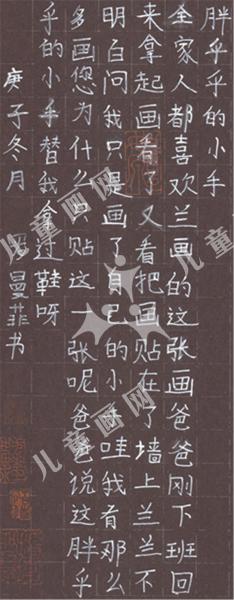 胖乎乎的小手
全家人都喜欢兰画的这张画爸爸刚下班回
来拿起画看了又看把画贴在了墙上兰兰不
明白问我只是画了自己的小手哇我有那么
多画您为什么只贴这一张呢爸爸说这胖乎
乎的小手替我拿过鞋呀
庚子冬月 曼菲书
儿童画网
儿童画网
儿童画网